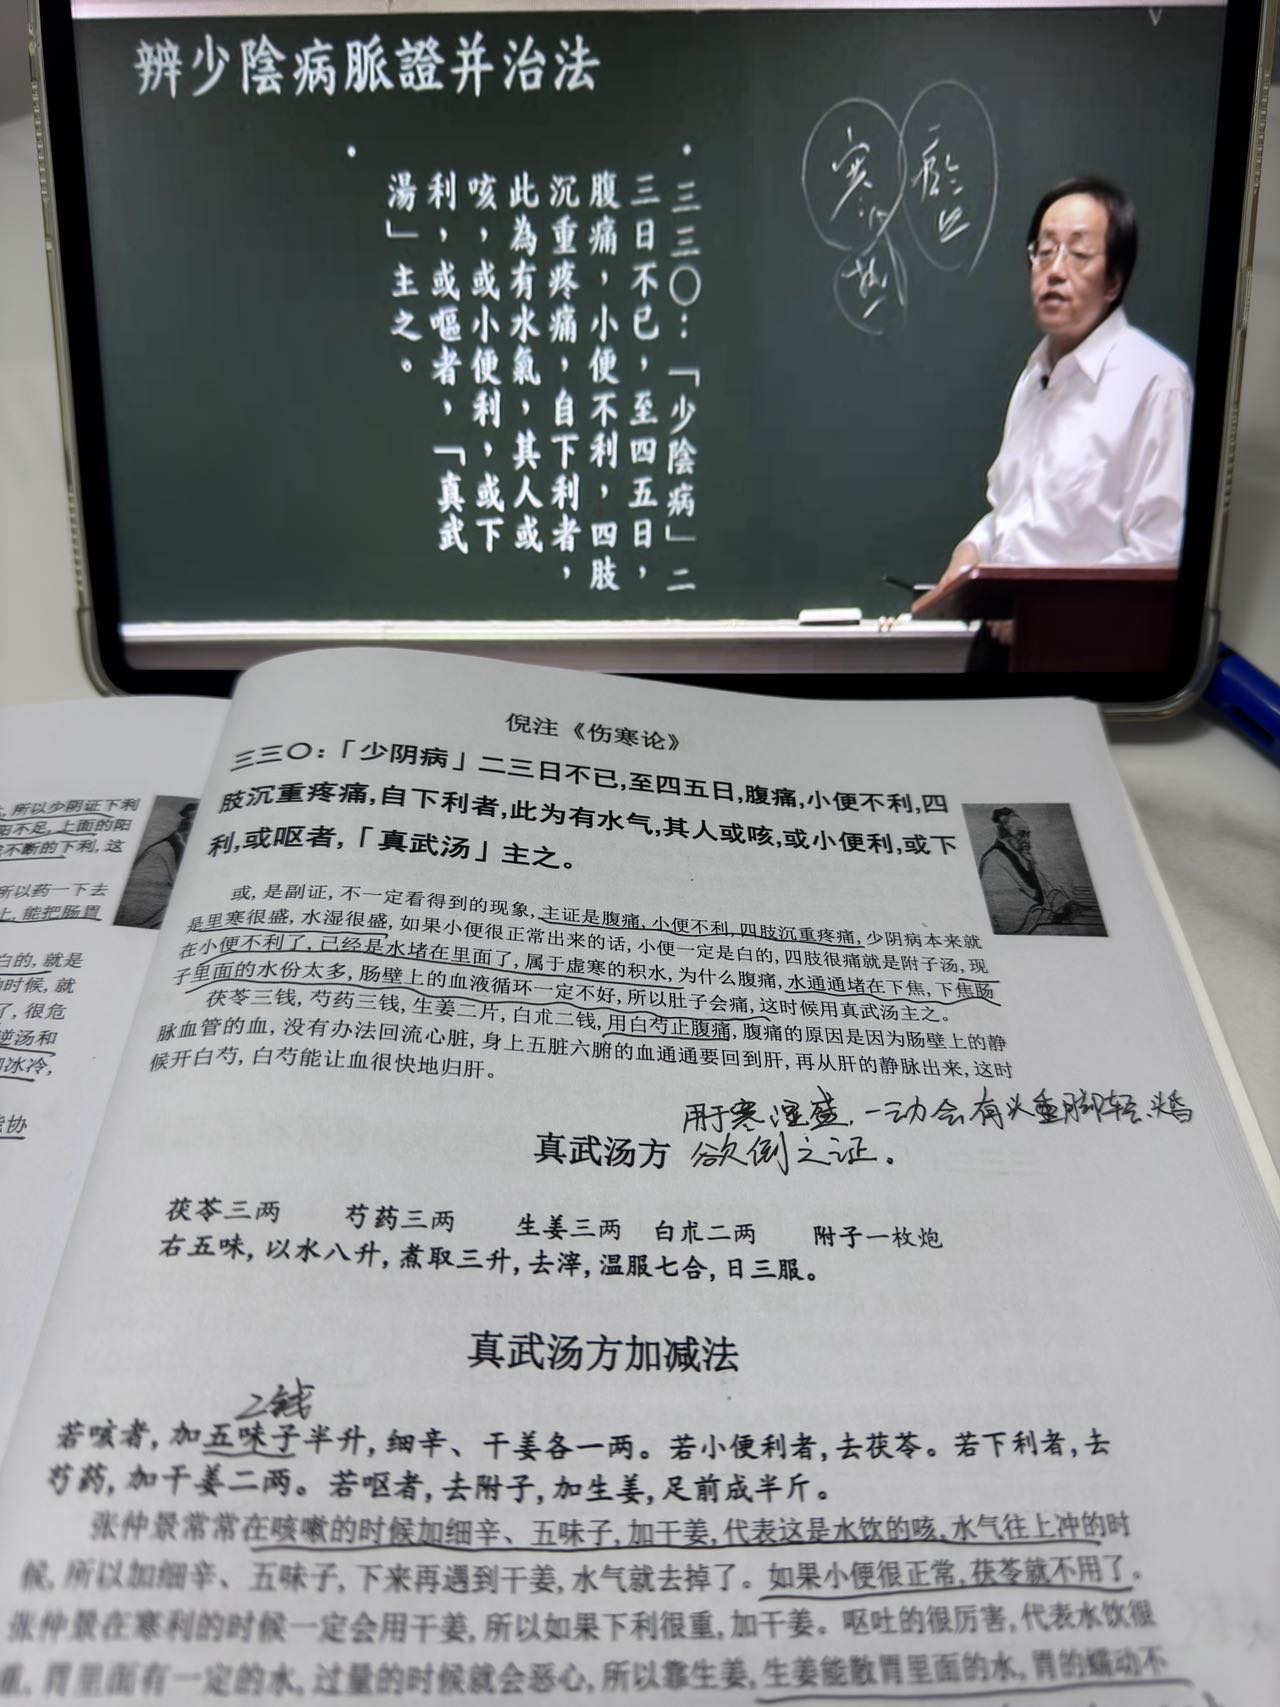 辨少陰病脈證并治法
三三〇：「少陰病」二
三日不已，至四五日，
腹痛，小便不利，四肢
沉重疼痛，自下利者，
此為有水氣，其人或
咳，或小便利，或下
利，或嘔者，「真武
湯」主之。
寒
热
倪注《伤寒论》
三三〇：「少阴病」二三日不已,至四五日,腹痛,小便不利,四
肢沉重疼痛,自下利者,此为有水气,其人或咳,或小便利,或下
利,或呕者,「真武汤」主之。
或,是副证,不一定看得到的现象,主证是腹痛,小便不利,四肢沉重疼痛,少阴病本来就
是里寒很盛,水湿很盛,如果小便很正常出来的话,小便一定是白的,四肢很痛就是附子汤,现
在小便不利了,已经是水堵在里面了,属于虚寒的积水,为什么腹痛,水通通堵在下焦,下焦肠
子里面的水份太多,肠壁上的血液循环一定不好,所以肚子会痛,这时候用真武汤主之。
茯苓三钱,芍药三钱,生姜二片,白朮二钱,用白芍止腹痛,腹痛的原因是因为肠壁上的静
脉血管的血,没有办法回流心脏,身上五脏六腑的血通通要回到肝,再从肝的静脉出来,这时
候开白芍,白芍能让血很快地归肝。
用于寒湿盛,一动会有头重脚轻,头昏
欲倒之证。
真武汤方
茯苓三两 芍药三两 生姜三两 白朮二两 附子一枚炮
右五味,以水八升,煮取三升,去滓,温服七合,日三服。
真武汤方加减法
2钱
若咳者,加五味子半升,细辛、干姜各一两。若小便利者,去茯苓。若下利者,去
芍药,加干姜二两。若呕者,去附子,加生姜,足前成半斤。
张仲景常常在咳嗽的时候加细辛、五味子,加干姜,代表这是水饮的咳,水气往上冲的时
候,所以加细辛、五味子,下来再遇到干姜,水气就去掉了。如果小便很正常,茯苓就不用了。
张仲景在寒利的时候一定会用干姜,所以如果下利很重,加干姜。呕吐的很厉害,代表水饮很
重,胃里面有一定的水,过量的时候就会恶心,所以靠生姜,生姜能散胃里面的水,胃的蠕动不
所以少阴证下利
阳不足,上面的阳
不断的下利,这
所以药一下去
上,能把肠胃
白的,就是
的时候,就
了,很危
逆汤和
冰冷,
能协